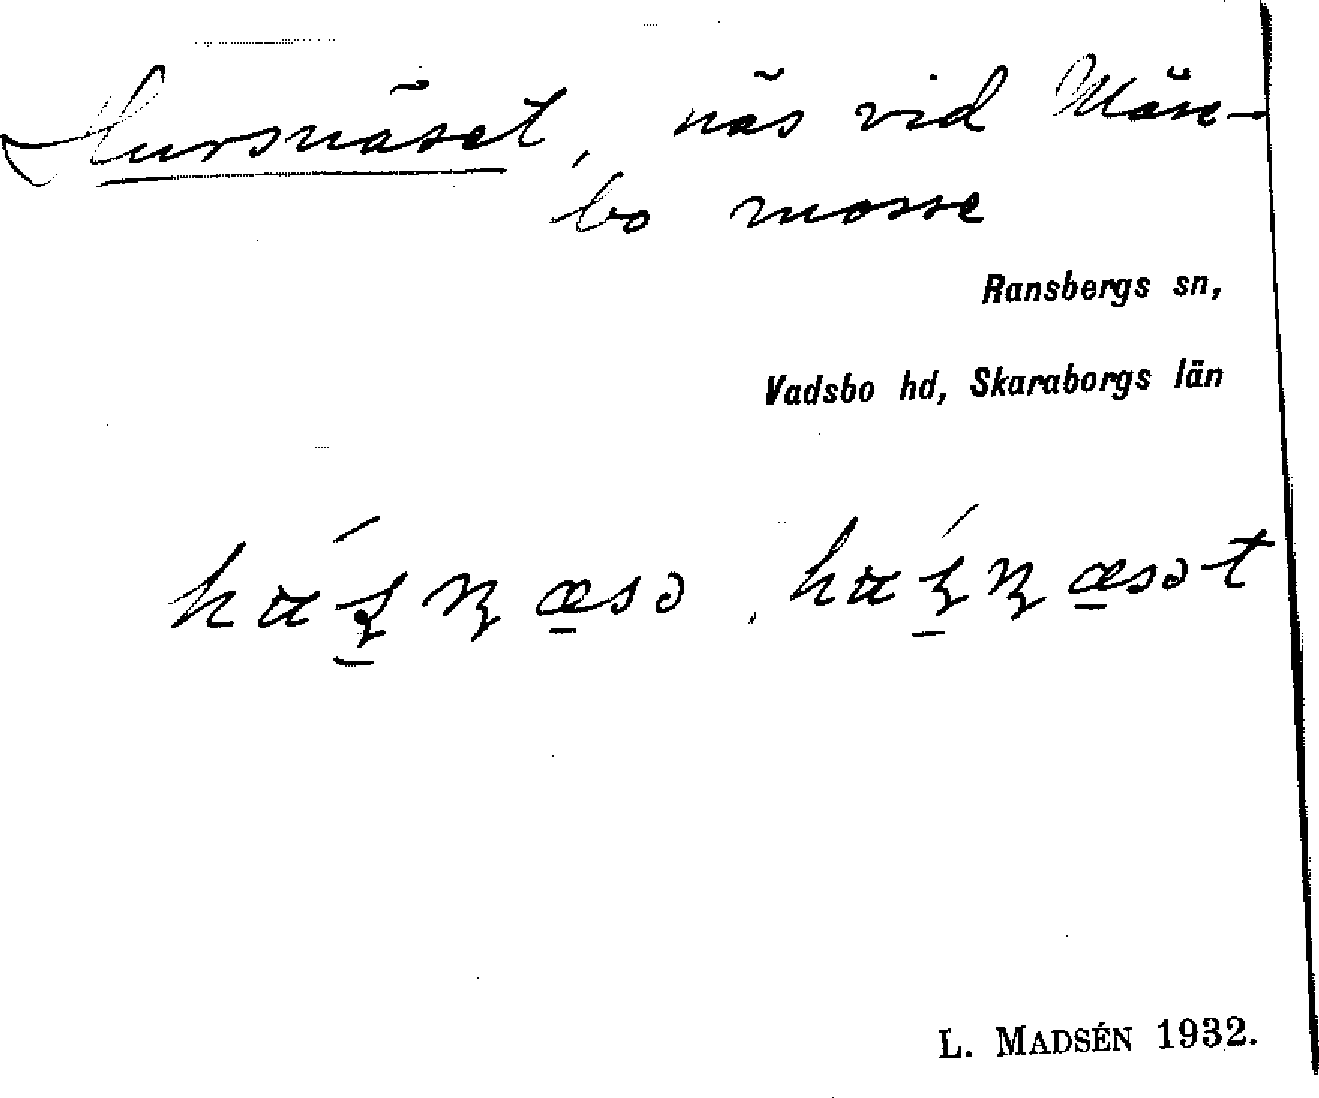 Hursnäset, näs vid Mäse-
bo mosse
Ransbergs sn,
Vadsbo hd, Skaraborgs län
L. MADSÉN 1932.